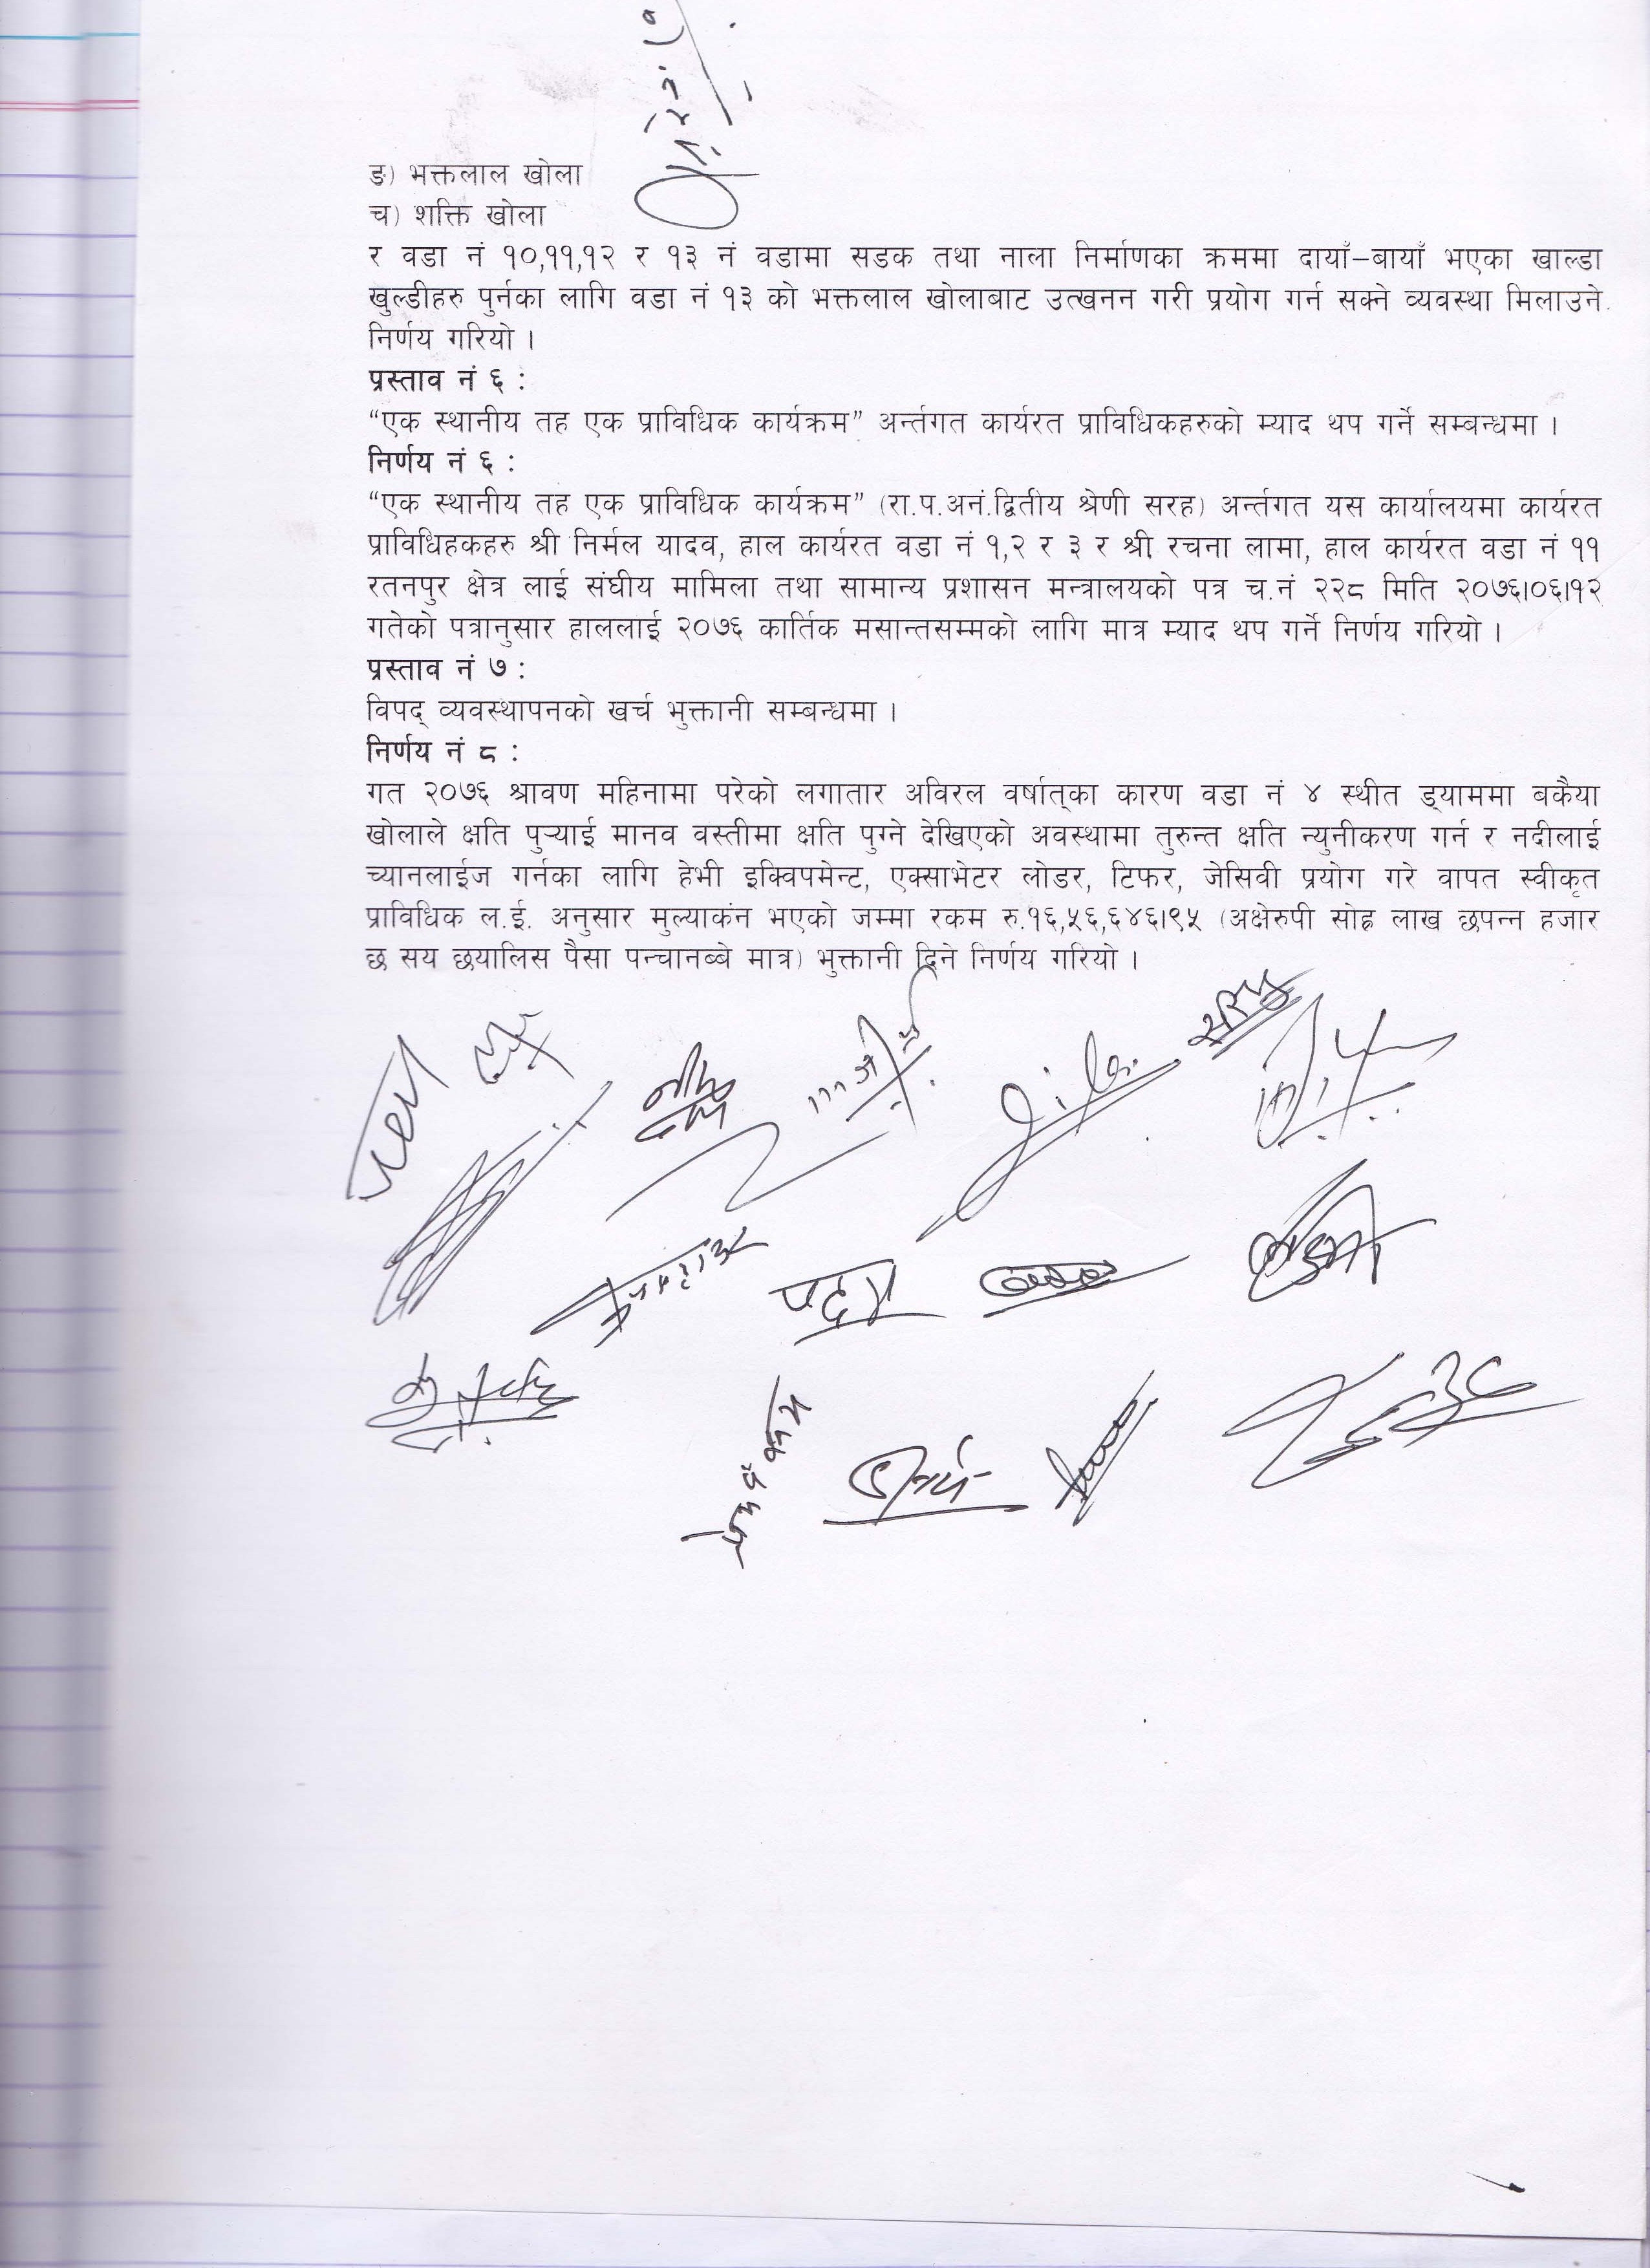 ङ) भक्तलाल खोला
च) शक्ति खोला
र वडा नं १०,११,१२ र १३ नं वडामा सडक तथा नाला निर्माणका क्रममा दायाँ–बायाँ भएका खाल्डा
खुल्डीहरु पुर्नका लागि वडा नं १३ को भक्तलाल खोलाबाट उत्खनन गरी प्रयोग गर्न सक्ने व्यवस्था मिलाउने
निर्णय गरियो ।
प्रस्ताव नं ६ :
“एक स्थानीय तह एक प्राविधिक कार्यक्रम” अर्न्तगत कार्यरत प्राविधिकहरुको म्याद थप गर्ने सम्बन्धमा ।
निर्णय नं ६ :
“एक स्थानीय तह एक प्राविधिक कार्यक्रम” (रा.प.अनं.द्वितीय श्रेणी सरह) अर्न्तगत यस कार्यालयमा कार्यरत
प्राविधिहकहरु श्री निर्मल यादव, हाल कार्यरत वडा नं १,२ र ३ र श्री रचना लामा, हाल कार्यरत वडा नं ११
रतनपुर क्षेत्र लाई संघीय मामिला तथा सामान्य प्रशासन मन्त्रालयको पत्र च.नं २२८ मिति २०७६।०६।१२
गतेको पत्रानुसार हाललाई २०७६ कार्तिक मसान्तसम्मको लागि मात्र म्याद थप गर्ने निर्णय गरियो ।
प्रस्ताव नं ७ :
विपद् व्यवस्थापनको खर्च भुक्तानी सम्बन्धमा ।
निर्णय नं ८ :
गत २०७६ श्रावण महिनामा परेको लगातार अविरल वर्षात्का कारण वडा नं ४ स्थीत ड्याममा बकैया
खोलाले क्षति पुऱ्याई मानव वस्तीमा क्षति पुग्ने देखिएको अवस्थामा तुरुन्त क्षति न्युनीकरण गर्न र नदीलाई
च्यानलाईज गर्नका लागि हेभी इक्विपमेन्ट, एक्साभेटर लोडर, टिफर, जेसिवी प्रयोग गरे वापत स्वीकृत
प्राविधिक ल.ई. अनुसार मुल्याकंन भएको जम्मा रकम रु.१६,५६,६४६।९५ (अक्षेरुपी सोह्र लाख छपन्न हजार
छ सय छयालिस पैसा पन्चानब्बे मात्र) भुक्तानी दिने निर्णय गरियो ।